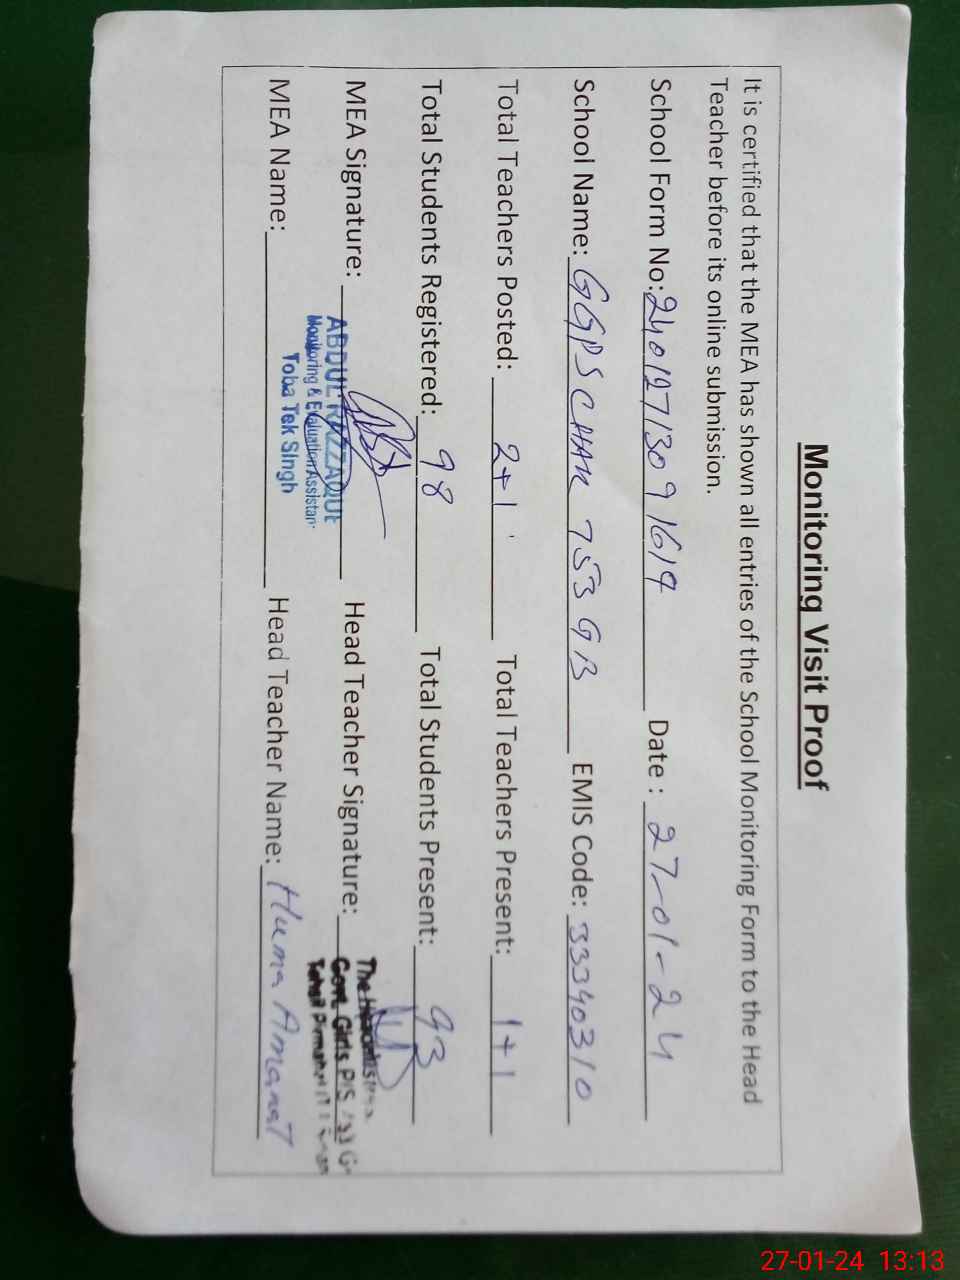 Monitoring Visit Proof
It is certified that the MEA has shown all entries of the School Monitoring Form to the Head
Teacher before its online submission.
School Form No: 24012713091619 Date : 27-01-24
School Name: GGPS CHAK 753 GB EMIS Code: 33340310
Total Teachers Posted: 2+1 Total Teachers Present: 1+1
Total Students Registered: 98 Total Students Present: 93
MEA Signature: Head Teacher Signature:
ABDUL RAZZAQUE
Monitoring & Evaluation Assistan
Toba Tek Singh
Govt. Girls P/S
MEA Name: Head Teacher Name: Huma Amanat
27-01-24 13:13